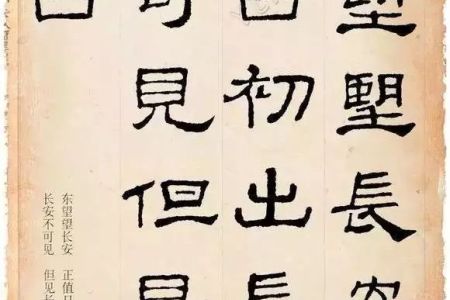 望望長安
日初出長
可見但見
日
东望望长安 正值日
长安不可见 但见长